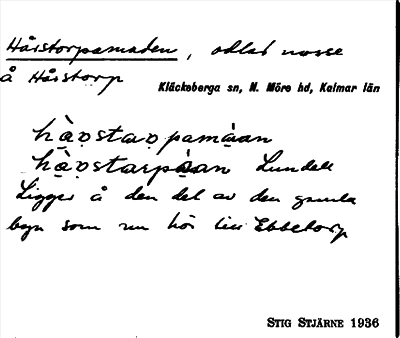 Håistorpamaden, odlad mosse
å Håistorp
Kläckeberga sn, N. Möre hd, Kalmar län
hàɒstaɒpamàan
hàɒstarpàan Lundell
Ligger å den del av den gamla
byn som nu hör till Ebbetorp
STIG STJÄRNE 1936